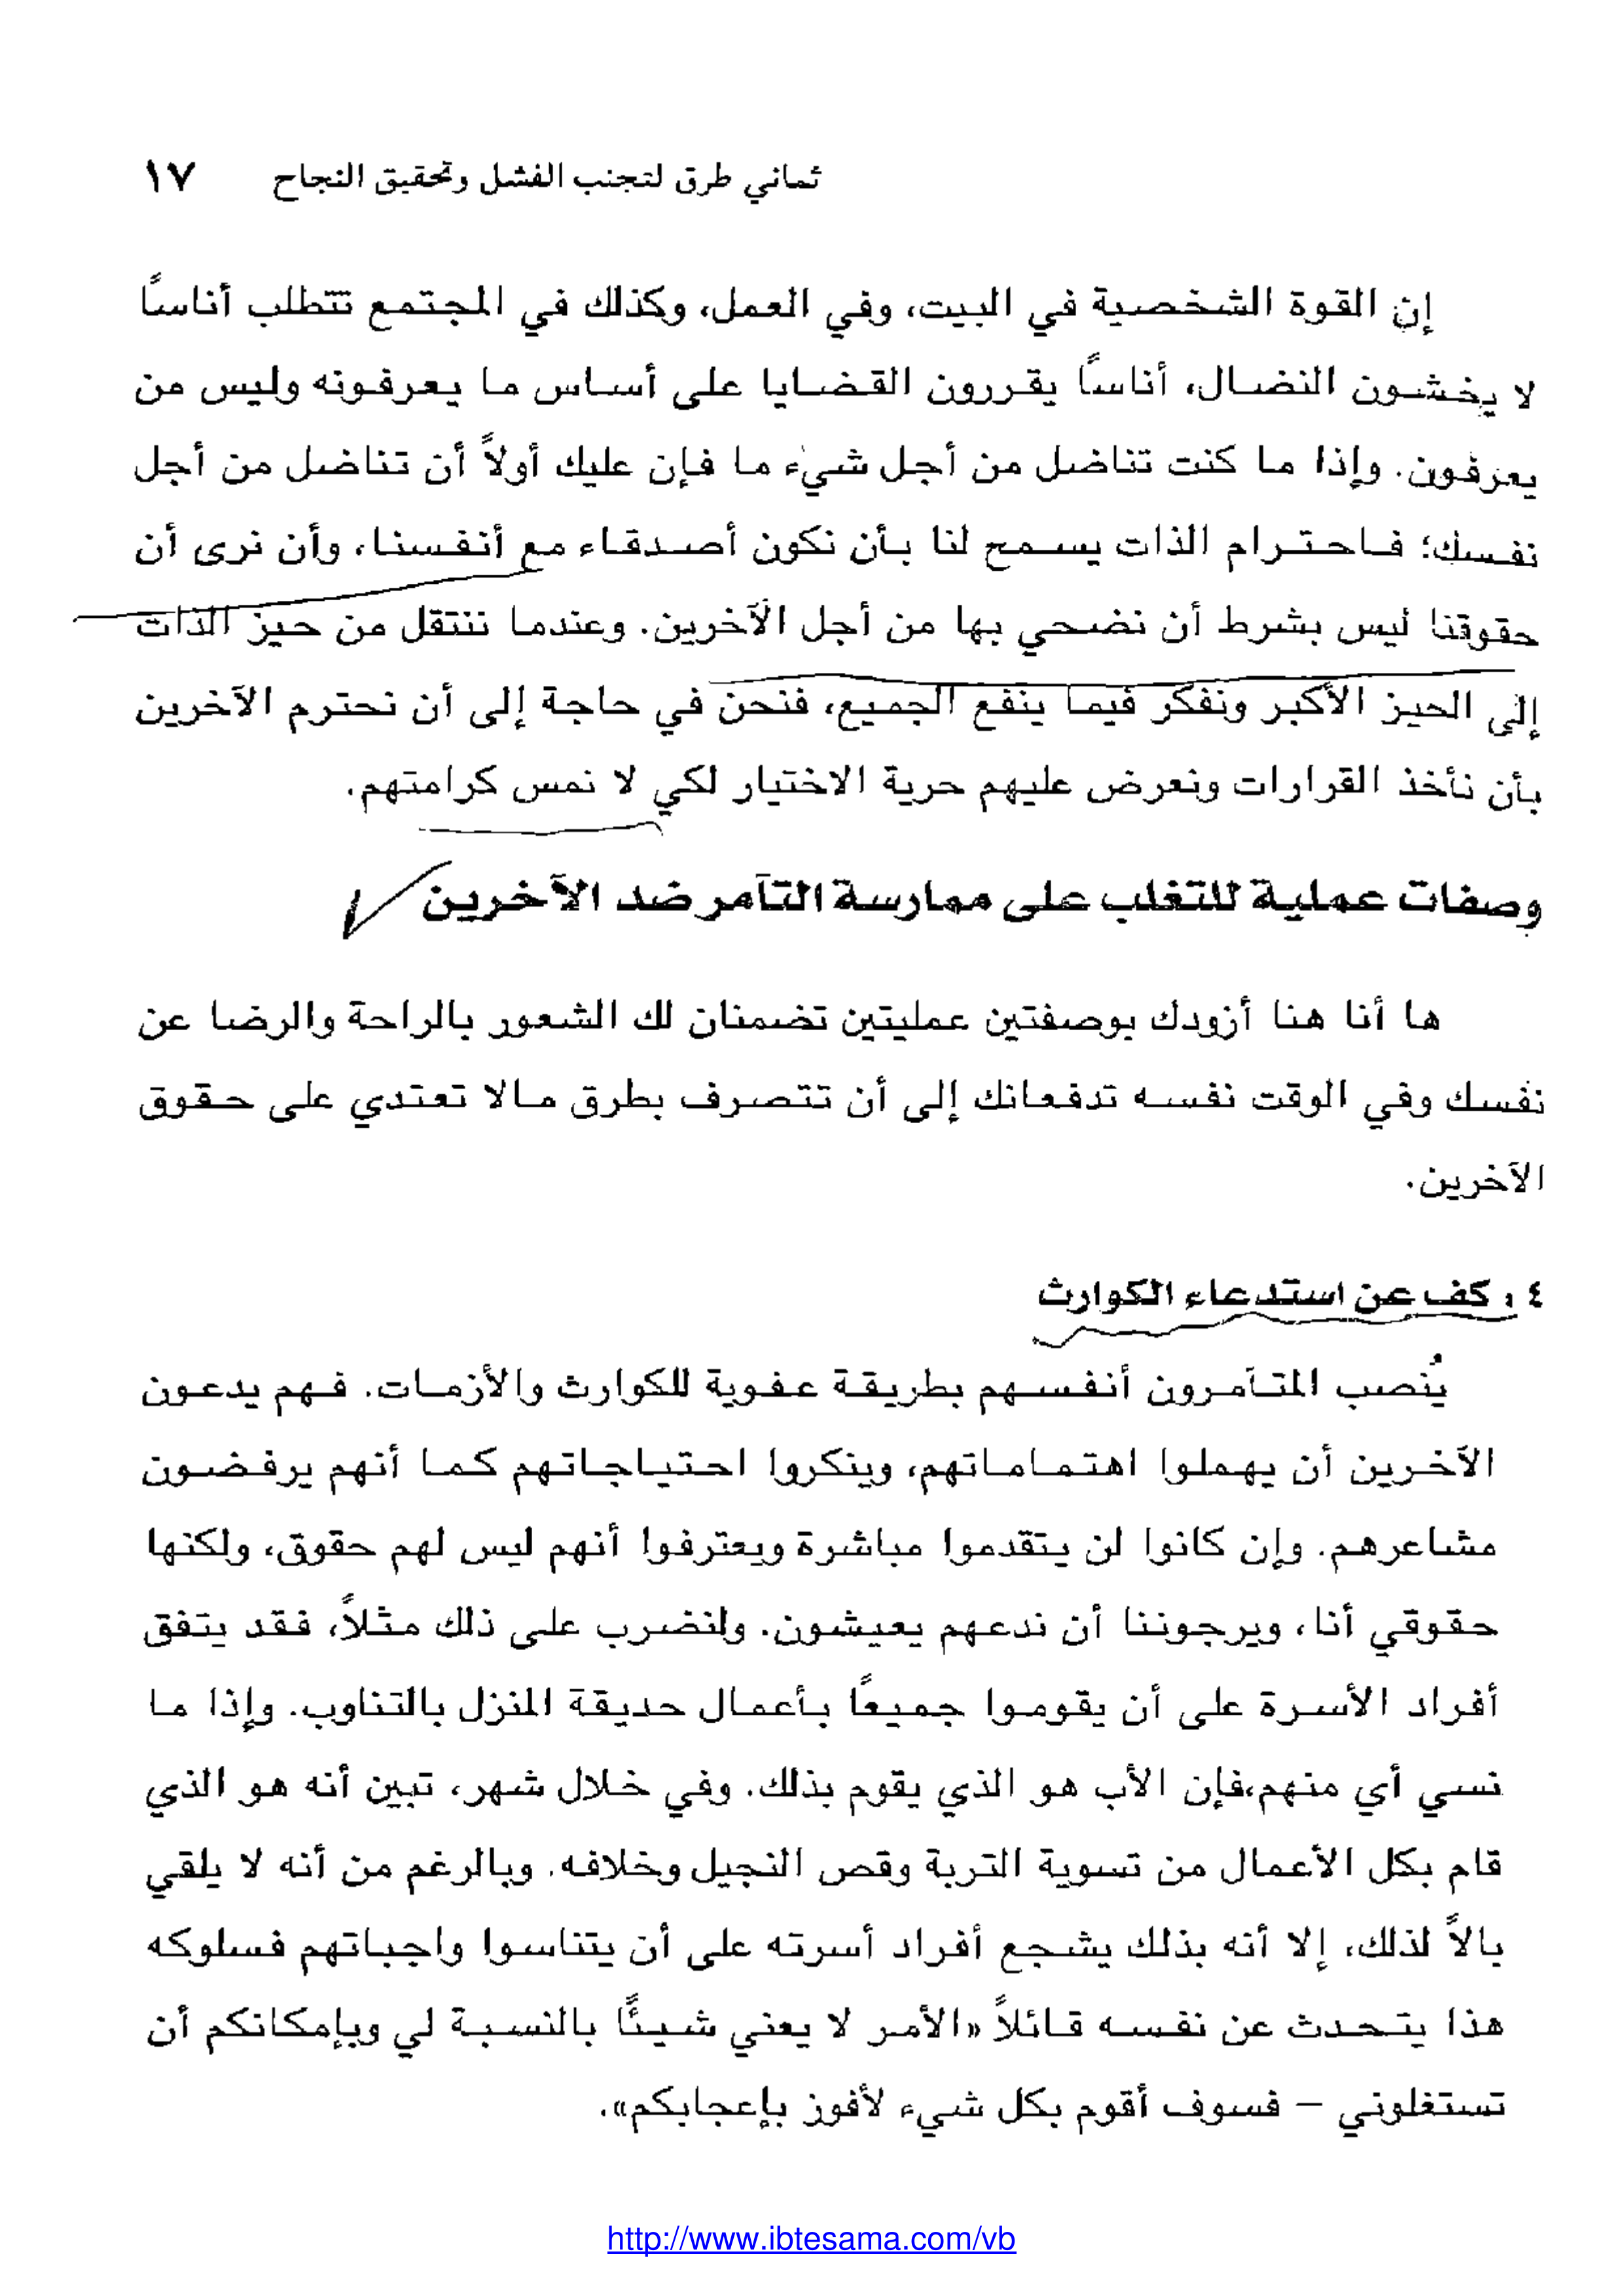 ثماني طرق لتجنب الفشل وتحقيق النجاح ١٧
إن القوة الشخصية في البيت، وفي العمل، وكذلك في المجتمع تتطلب أناساً
لا يخشون النضال، أناساً يقررون القضايا على أساس ما يعرفونه وليس من
يعرفون. وإذا ما كنت تناضل من أجل شيء ما فإن عليك أولاً أن تناضل من أجل
نفسك؛ فاحترام الذات يسمح لنا بأن نكون أصدقاء مع أنفسنا، وأن نرى أن
حقوقنا ليس بشرط أن نضحي بها من أجل الآخرين. وعندما ننتقل من حيز الذات
إلى الحيز الأكبر ونفكر فيما ينفع الجميع، فنحن في حاجة إلى أن نحترم الآخرين
بأن نأخذ القرارات ونعرض عليهم حرية الاختيار لكي لا نمس كرامتهم.
وصفات عملية للتغلب على ممارسة التآمر ضد الآخرين
ها أنا هنا أزودك بوصفتين عمليتين تضمنان لك الشعور بالراحة والرضا عن
نفسك وفي الوقت نفسه تدفعانك إلى أن تتصرف بطرق مالا تعتدي على حقوق
الآخرين.
٤ . كف عن استدعاء الكوارث
يُنصب المتآمرون أنفسهم بطريقة عفوية للكوارث والأزمات. فهم يدعون
الآخرين أن يهملوا اهتماماتهم، وينكروا احتياجاتهم كما أنهم يرفضون
مشاعرهم. وإن كانوا لن يتقدموا مباشرة ويعترفوا أنهم ليس لهم حقوق، ولكنها
حقوقي أنا، ويرجوننا أن ندعهم يعيشون. ولنضرب على ذلك مثلاً، فقد يتفق
أفراد الأسرة على أن يقوموا جميعًا بأعمال حديقة المنزل بالتناوب. وإذا ما
نسي أي منهم،فإن الأب هو الذي يقوم بذلك. وفي خلال شهر، تبين أنه هو الذي
قام بكل الأعمال من تسوية التربة وقص النجيل وخلافه. وبالرغم من أنه لا يلقي
بالاً لذلك، إلا أنه بذلك يشجع أفراد أسرته على أن يتناسوا واجباتهم فسلوكه
هذا يتحدث عن نفسه قائلاً «الأمر لا يعني شيئًا بالنسبة لي وبإمكانكم أن
تستغلوني – فسوف أقوم بكل شيء لأفوز بإعجابكم».
http://www.ibtesama.com/vb